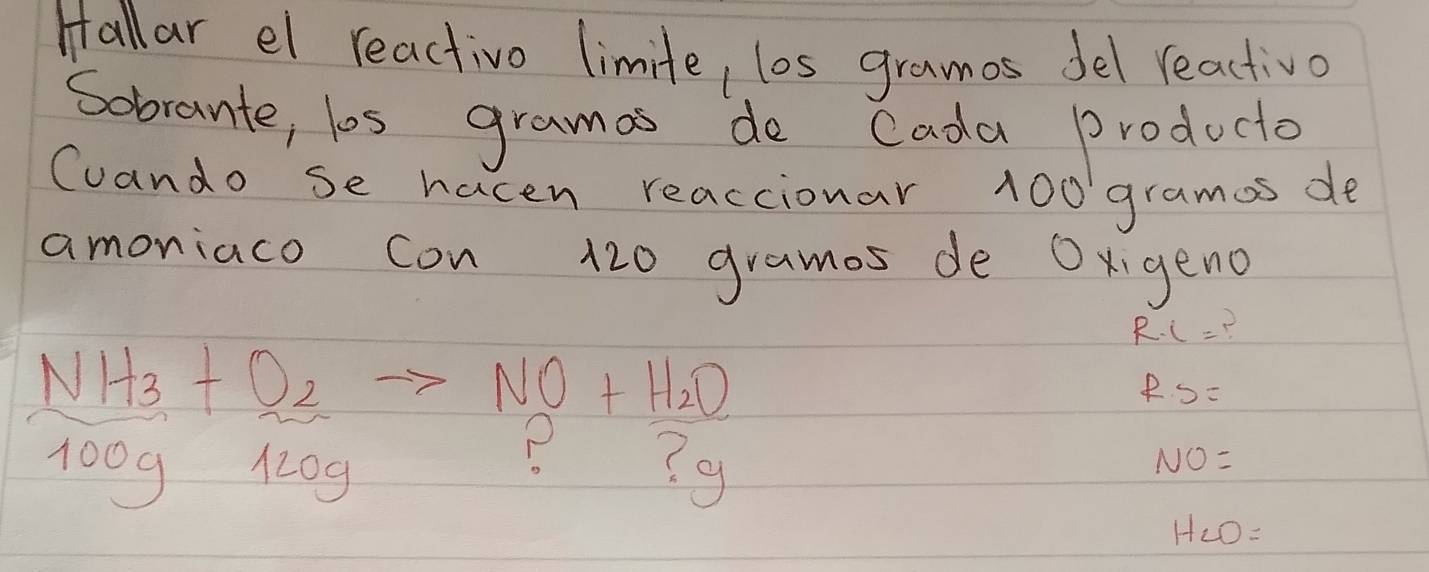 Hallar el reactivo limite, los gramos del reactivo
Sobrante, los gramos de Cada producto
Cuando se hacen reaccionar 100 gramos de
amoniaco Con 120 gramos de Oxigeno
R.L=?
NH3 + O2 -> NO + H2O
R.S=
100g 120g ? ?g
NO=
H2O=